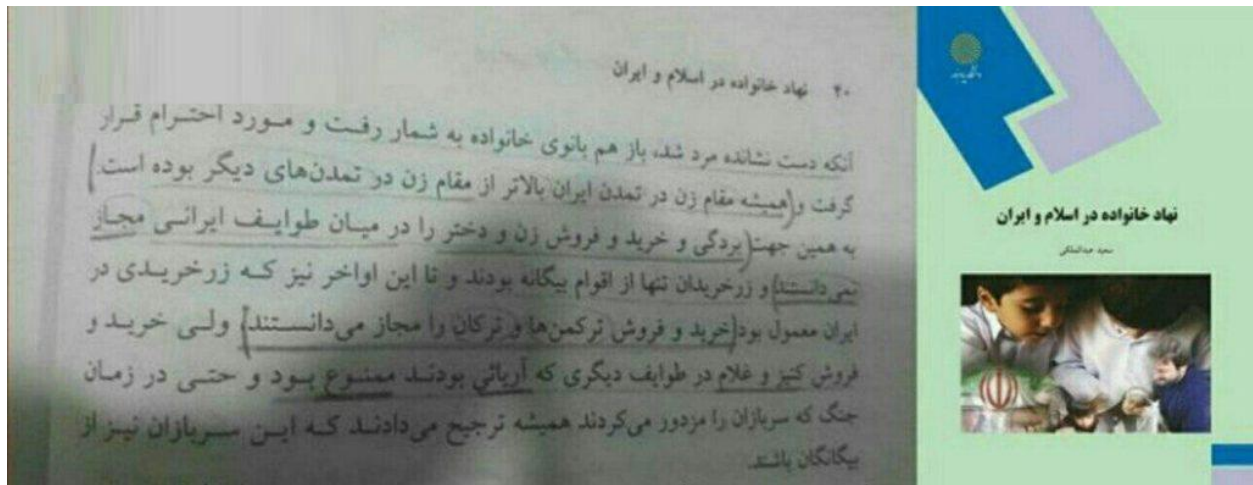 ۴۰ نهاد خانواده در اسلام و ایران
آنکه دست نشانده مرد شد، باز هم بانوی خانواده به شمار رفت و مورد احترام قرار
گرفت و همیشه مقام زن در تمدن ایران بالاتر از مقام زن در تمدن‌های دیگر بوده است.
به همین جهت بردگی و خرید و فروش زن و دختر را در میان طوایف ایرانی مجاز
نمی‌دانستند و زرخریدان تنها از اقوام بیگانه بودند و تا این اواخر نیز که زرخریدی در
ایران معمول بود خرید و فروش ترکمن‌ها و ترکان را مجاز می‌دانستند ولی خرید و
فروش کنیز و غلام در طوایف دیگری که آریائی بودند ممنوع بود و حتی در زمان
جنگ که سربازان را مزدور می‌کردند همیشه ترجیح می‌دادند که این سربازان نیز از
بیگانگان باشند.
نهاد خانواده در اسلام و ایران
سعید عبدالملکی